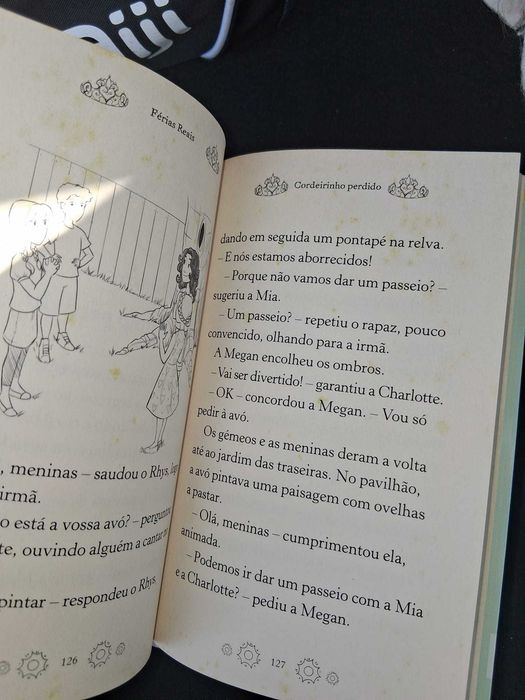 Férias Reais
, meninas – saudou o Rhys, logo
irmã.
o está a vossa avó? – perguntou
te, ouvindo alguém a cantar
pintar – respondeu o Rhys.
126
Cordeirinho perdido
dando em seguida um pontapé na relva.
– E nós estamos aborrecidos!
– Porque não vamos dar um passeio? –
sugeriu a Mia.
– Um passeio? – repetiu o rapaz, pouco
convencido, olhando para a irmã.
A Megan encolheu os ombros.
– Vai ser divertido! – garantiu a Charlotte.
– OK – concordou a Megan. – Vou só
pedir à avó.
Os gémeos e as meninas deram a volta
até ao jardim das traseiras. No pavilhão,
a avó pintava uma paisagem com ovelhas
a pastar.
– Olá, meninas – cumprimentou ela,
animada.
– Podemos ir dar um passeio com a Mia
e a Charlotte? – pediu a Megan.
127